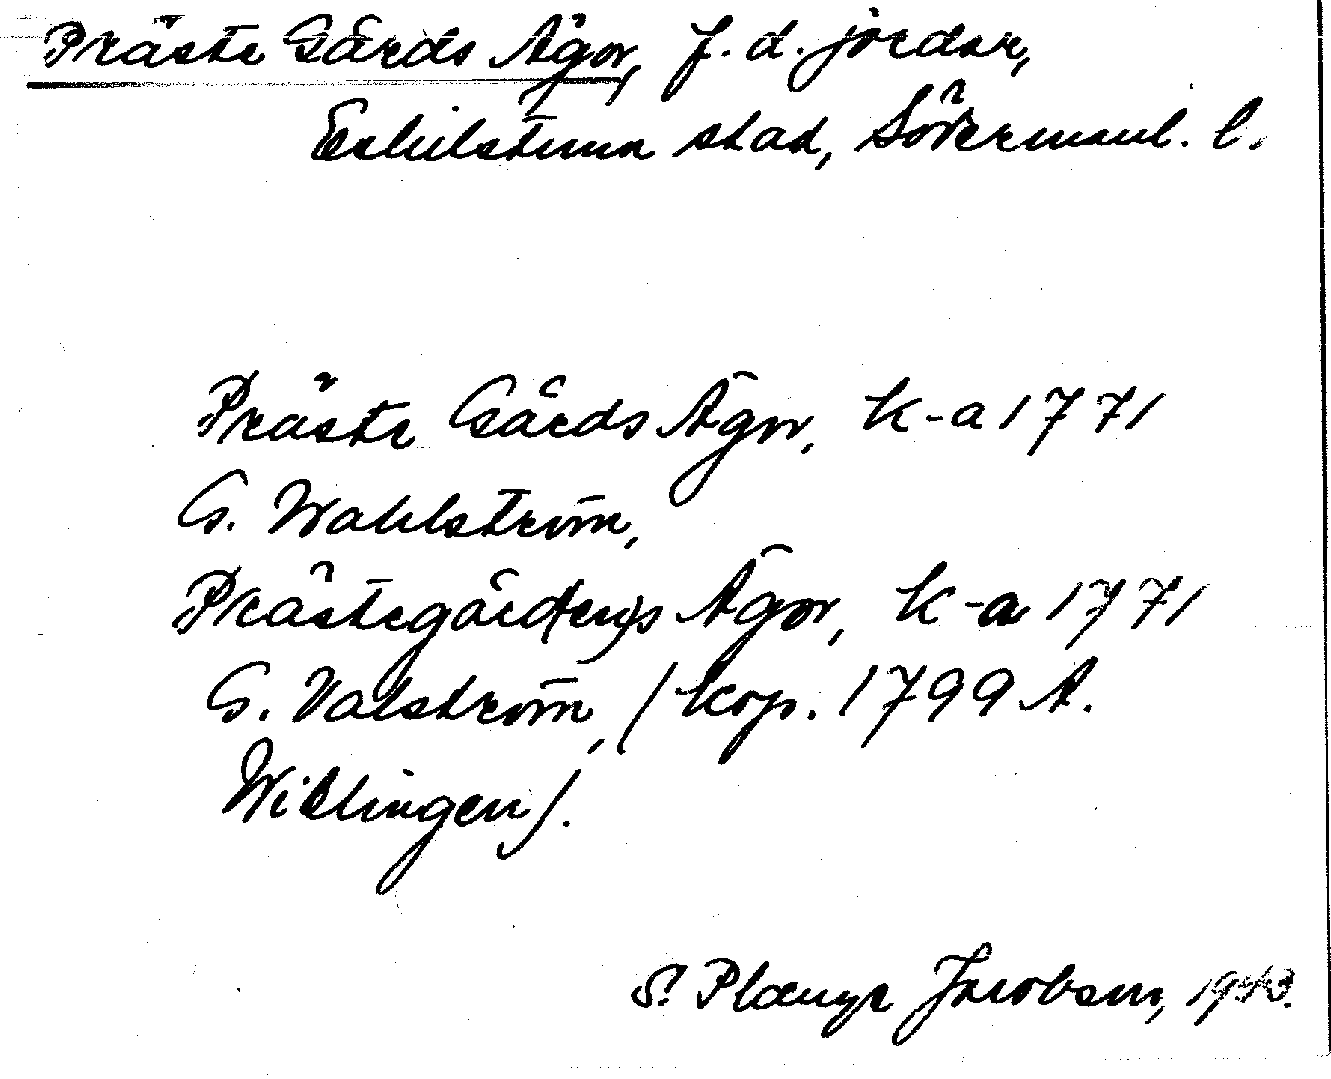 Präste Gårds Ägor, f. d. jordar,
Eskilstuna stad, Södermanl. l.
Präste Gårds Ägor, k-a 1771
G. Wahlström,
Prästegård(en)s Ägor, k-a 1771
G. Valström, (kop. 1799 A.
Willingen).
S. Jacobson, 1943.